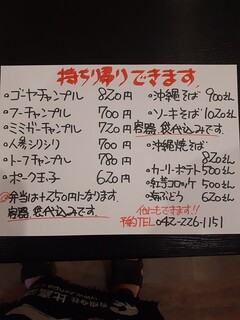 持ち帰りできます
・ゴーヤチャンプル 820円
・フーチャンプル 700円
・ミミガーチャンプル 720円
・人参シリシリ 700円
・トーフチャンプル 780円
・ポーク玉子 620円
◎弁当は+250円になります
容器袋代込みです
・沖縄そば 900えん
・ソーキそば 1020えん
容器袋代込みです
・沖縄焼そば
820えん
・カーリーポテト 500えん
・紅芋コロッケ 500えん
・海ぶどう 620えん
他にもできます!!
予約TEL 042-226-1151